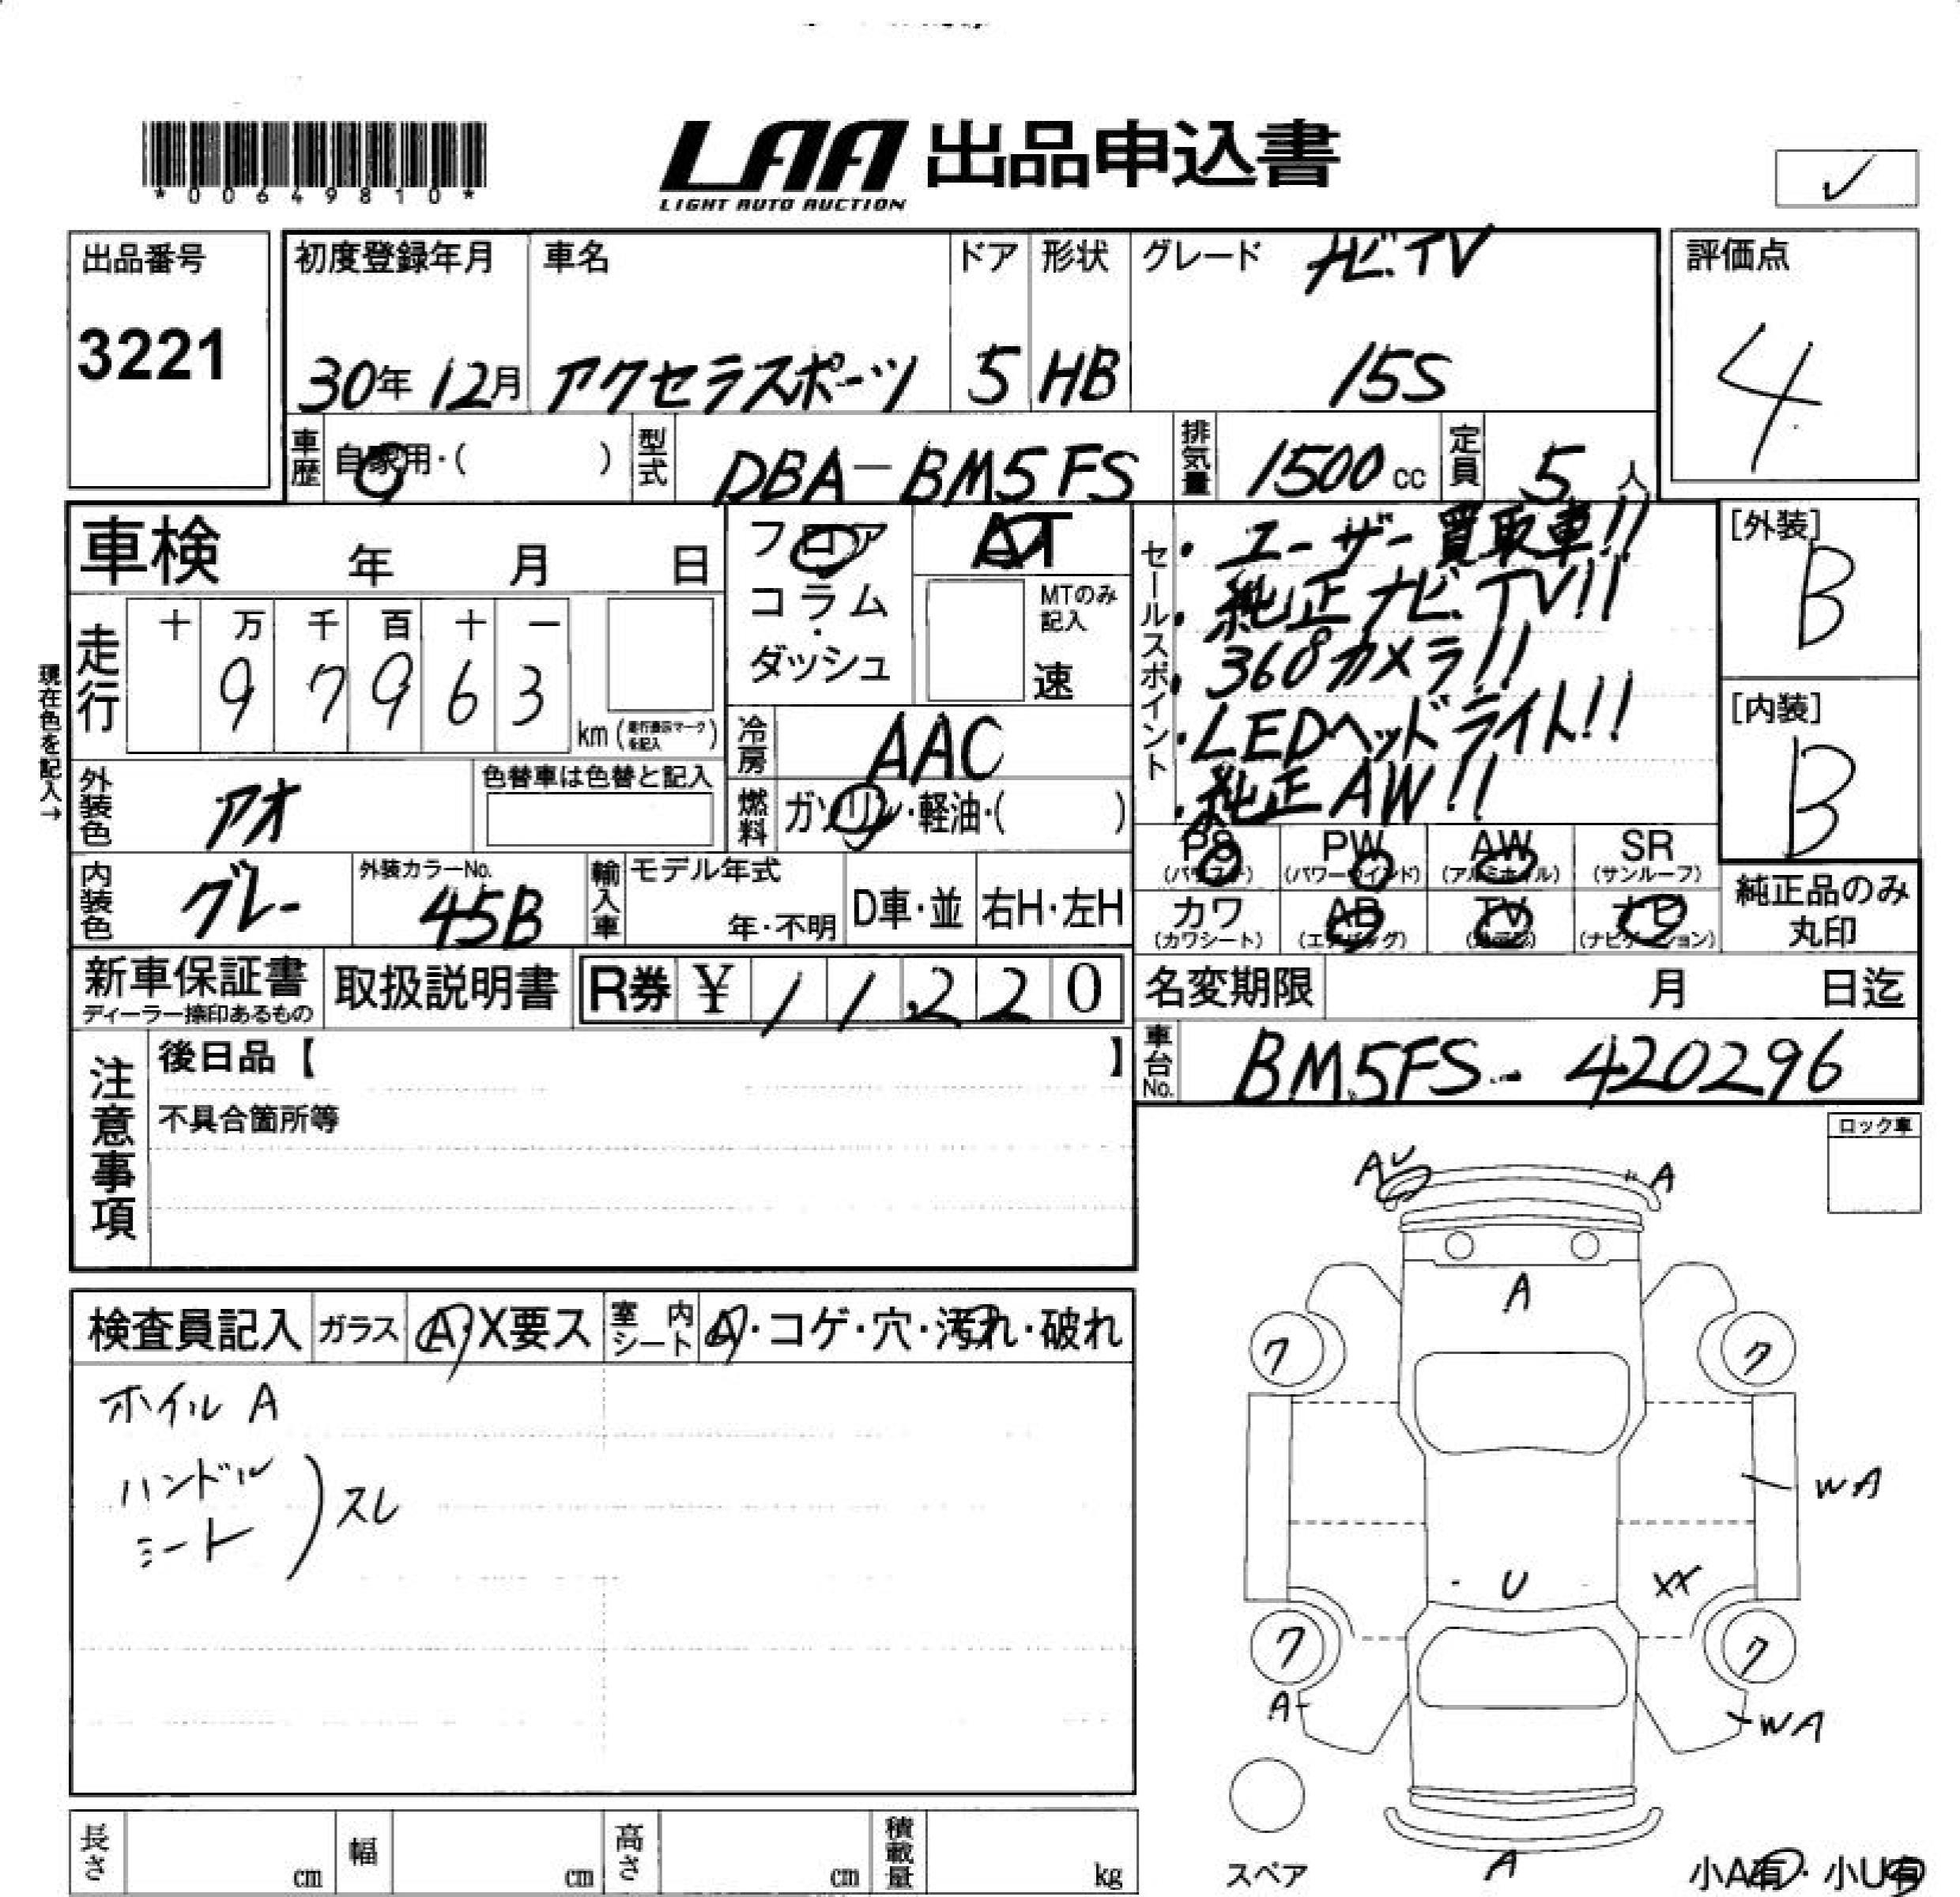 *00649810*
LAA 出品申込書
LIGHT AUTO AUCTION
✓
出品番号
3221
初度登録年月
30年 12月
車名
アクセラスポーツ
ドア
5
形状
HB
グレード
ナビ.TV
15S
評価点
4
車歴
自家用・( )
型式
DBA-BM5FS
排気量
1500 cc
定員
5 人
車検 年 月 日
フロア
コラム
・
ダッシュ
AT
MTのみ
記入
速
セールスポイント
・ユーザー買取車!!
・純正ナビ.TV!!
・360°カメラ!!
・LEDヘッドライト!!
・純正AW!!
[外装]
B
[内装]
B
現在色を記入→
走行
十 万 千 百 十 一
9 7 9 6 3
km (走行表示マークを記入)
冷房
AAC
燃料
ガソリン・軽油・( )
外装色
アオ
色替車は色替と記入
内装色
グレー
外装カラーNo.
45B
輸入車
モデル年式
年・不明
D車・並
右H・左H
PS
(パワステ)
PW
(パワーウインド)
AW
(アルミホイル)
SR
(サンルーフ)
カワ
(カワシート)
AB
(エアバッグ)
TV
ナビ
(ナビゲーション)
純正品のみ
丸印
新車保証書
ディーラー捺印あるもの
取扱説明書
R券 ¥ 11,220
名変期限 月 日迄
車台No.
BM5FS-420296
注意事項
後日品【 】
不具合箇所等
ロック車
検査員記入
ガラス
A・X要ス
室内シート
A・コゲ・穴・汚れ・破れ
ホイル A
ハンドル
シート
) スレ
AU
A
A
ワ
ワ
WA
U
XX
ワ
ワ
A
WA
A
スペア
小A有・小U有
長さ cm
幅 cm
高さ cm
積載量 kg